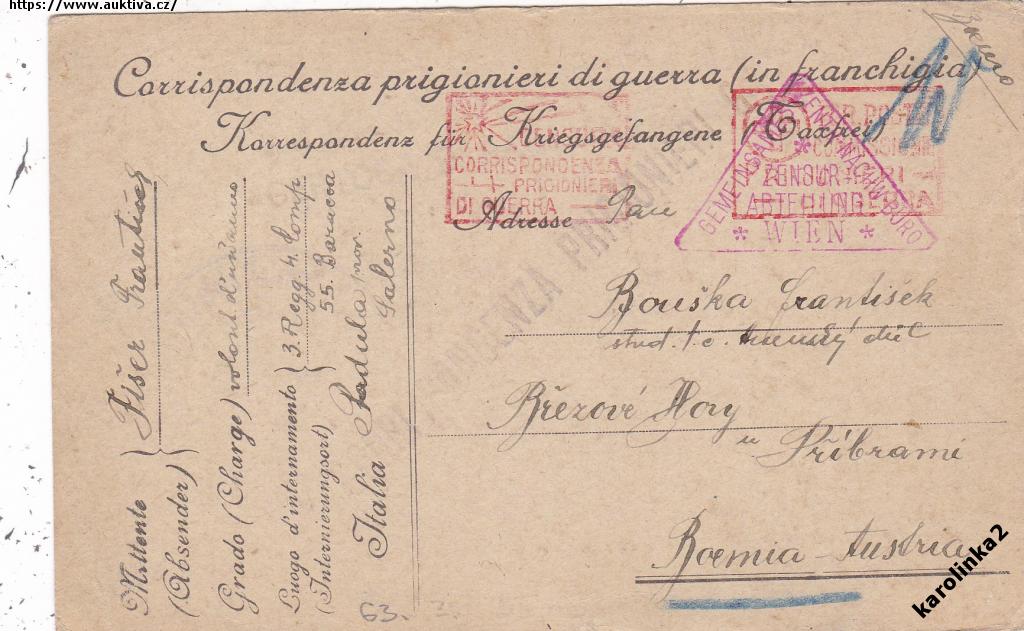 https://www.auktiva.cz/
Corrispondenza prigionieri di guerra (in franchigia)
Korrespondenz für Kriegsgefangene (Taxfrei)
CORRISPONDENZA
PRIGIONIERI
DI GUERRA
GEMEINSAM. ZENTR. NACHW. BÜRO
ZENSUR-
ABTEILUNG
* WIEN *
CORRISPONDENZA PRIGIONIERI
Adresse Pan
Bouška František
stud.
Březové Hory
u Příbrami
Boemia - Austria
Mittente
(Absender)
Fišer František
Grado (Charge) volont. d'un anno
Luogo d'internamento
(Internierungsort)
3. Regg. 4. Comp.
55. Baracca
Padula prov.
Italia Salerno
63.
karolinka2